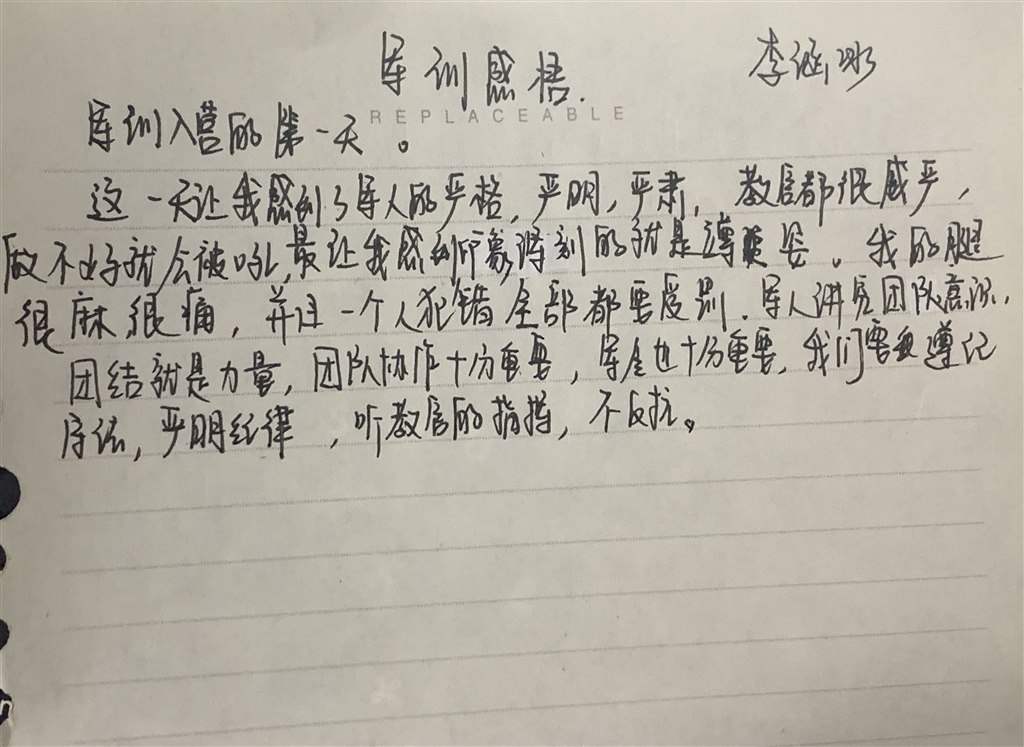 军训感悟. 李涵冰
REPLACEABLE
军训入营的第一天。
这一天让我感到了军人的严格,严明,严肃,教官都很威严,
做不好就会被吼,最让我感到印象深刻的就是蹲姿。我的腿
很麻很痛,并且一个人犯错全部都要受罚.军人讲究团队意识,
团结就是力量,团队协作十份重要,军令也十份重要,我们要遵记
军法,严明纪律,听教官的指挥,不反抗。